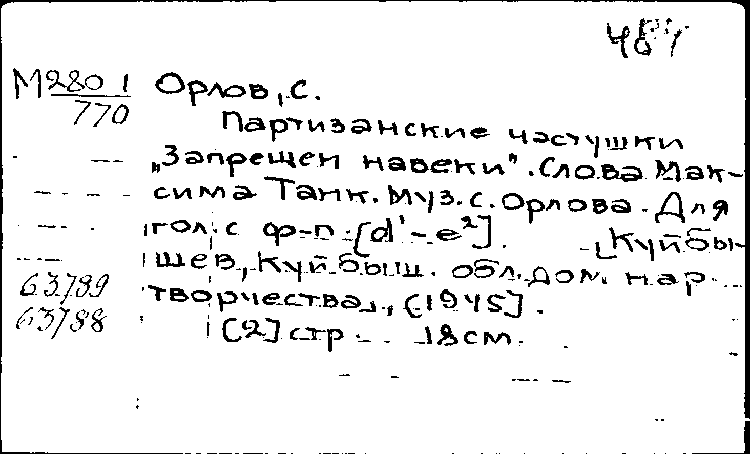 М280 1
770
Орлов, С.
Партизанские частушки
„Запрещен навеки". Слова Мак-
сима Танк. Муз. С. Орлова. Для
гол. с ф-п. [d¹-e²]. [Куйбы-
шев, Куйбыш. обл. дом. нар.
творчества], [1945].
[2] стр. 18 см.
63789
63788